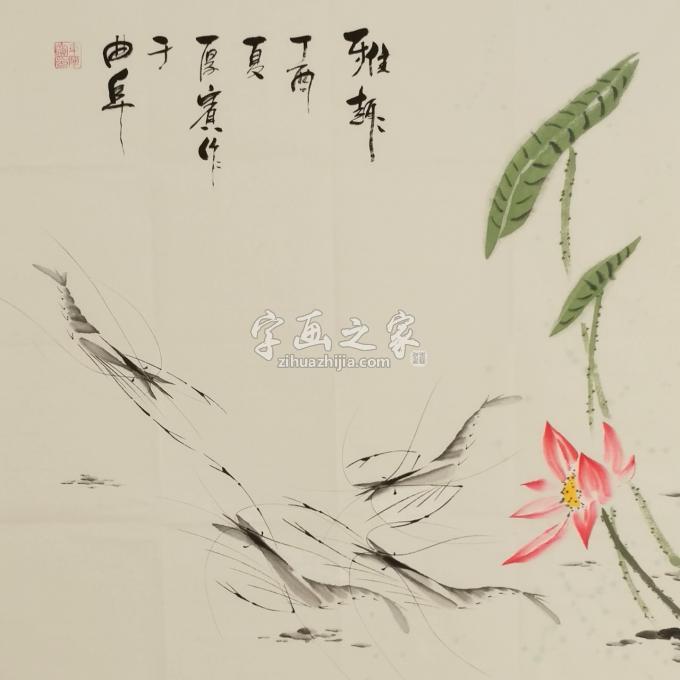 雅趣
丁酉
夏
厚宾作
于
曲阜
字画之家
zihuazhijia.com